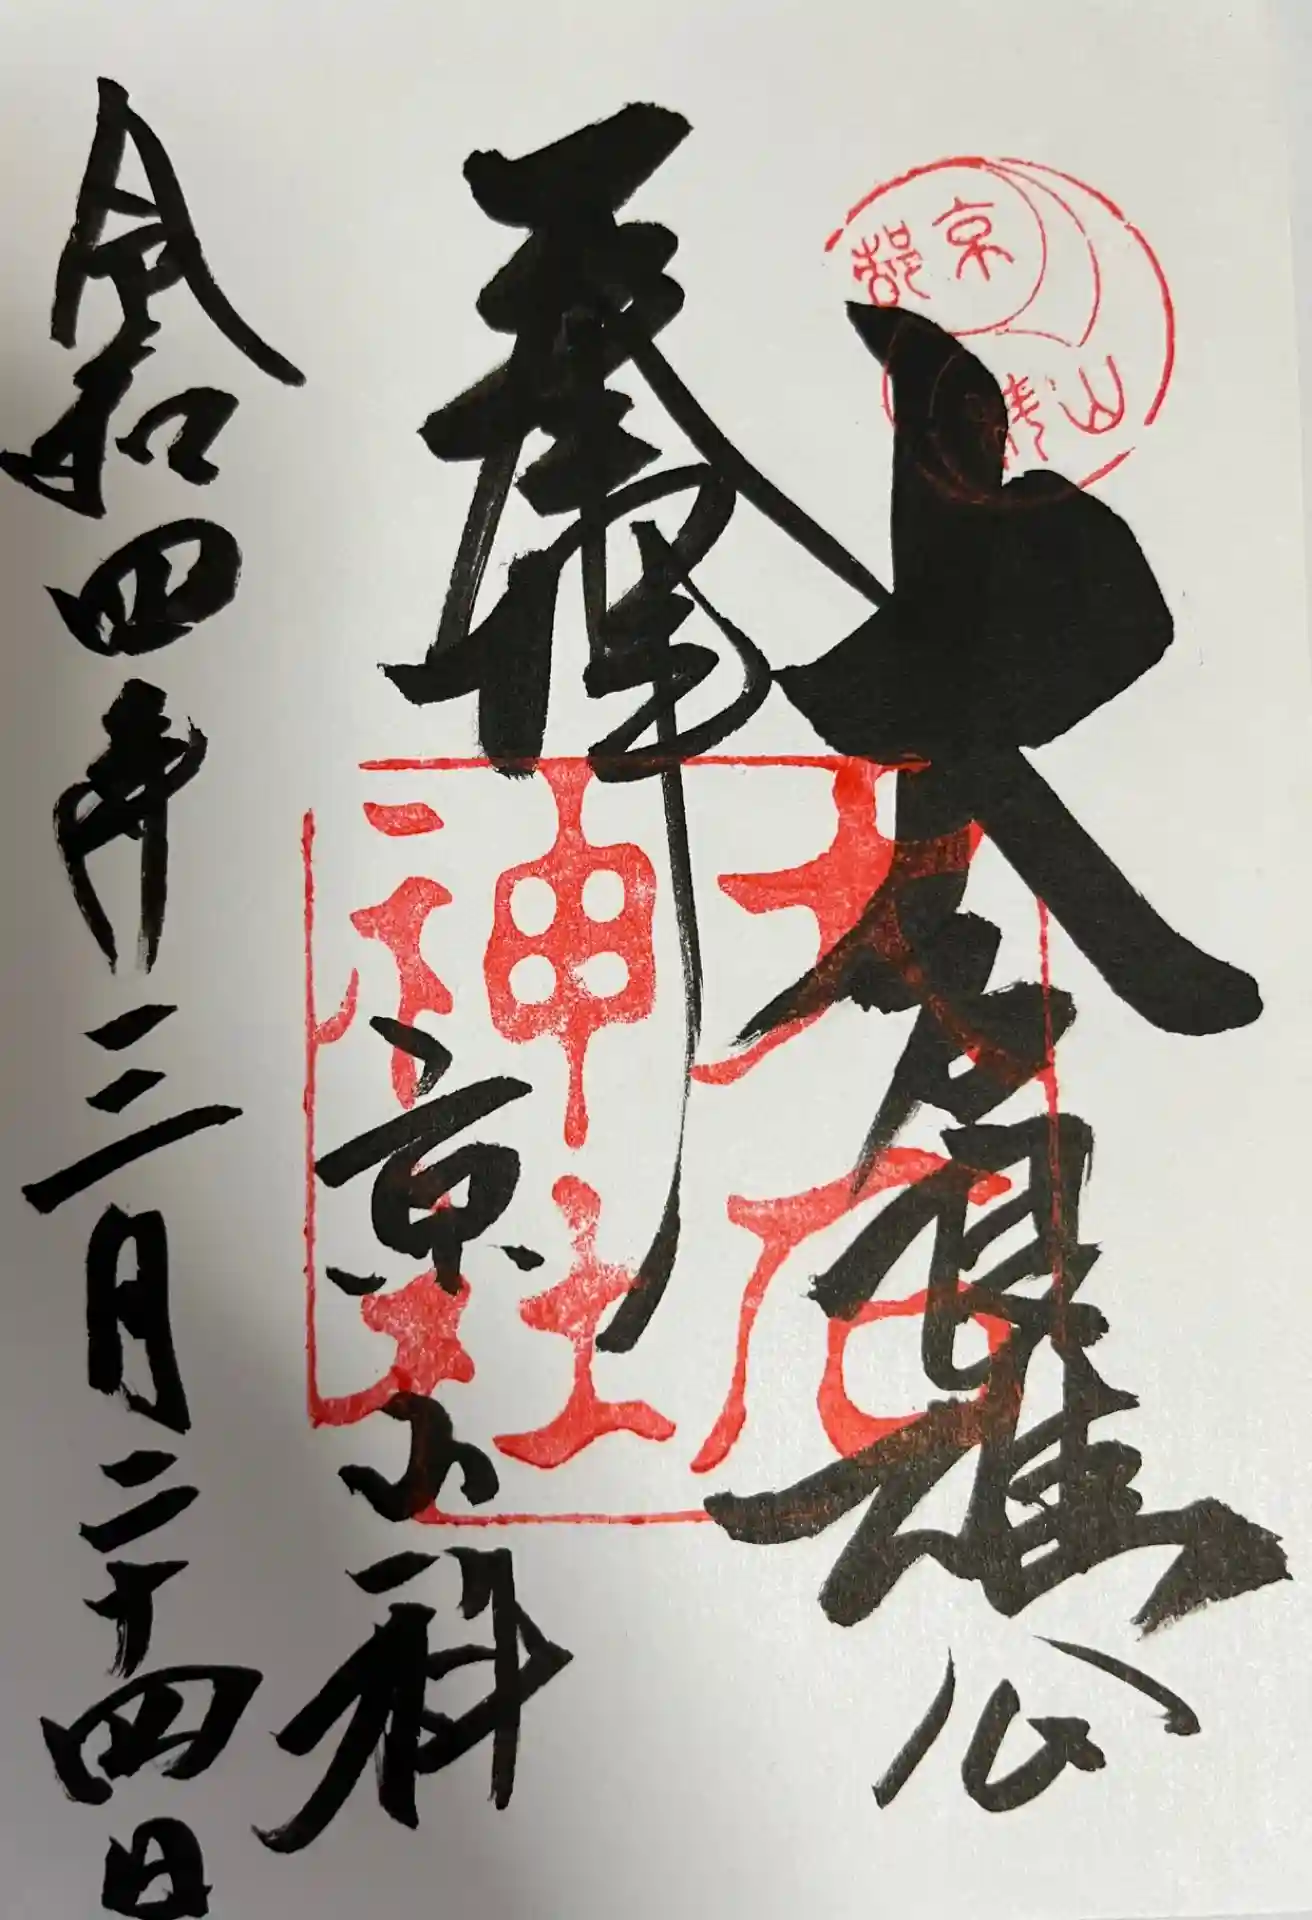 京都
山科
大石内蔵
大石
神社
奉拝
京山科
令和四年三月二十四日